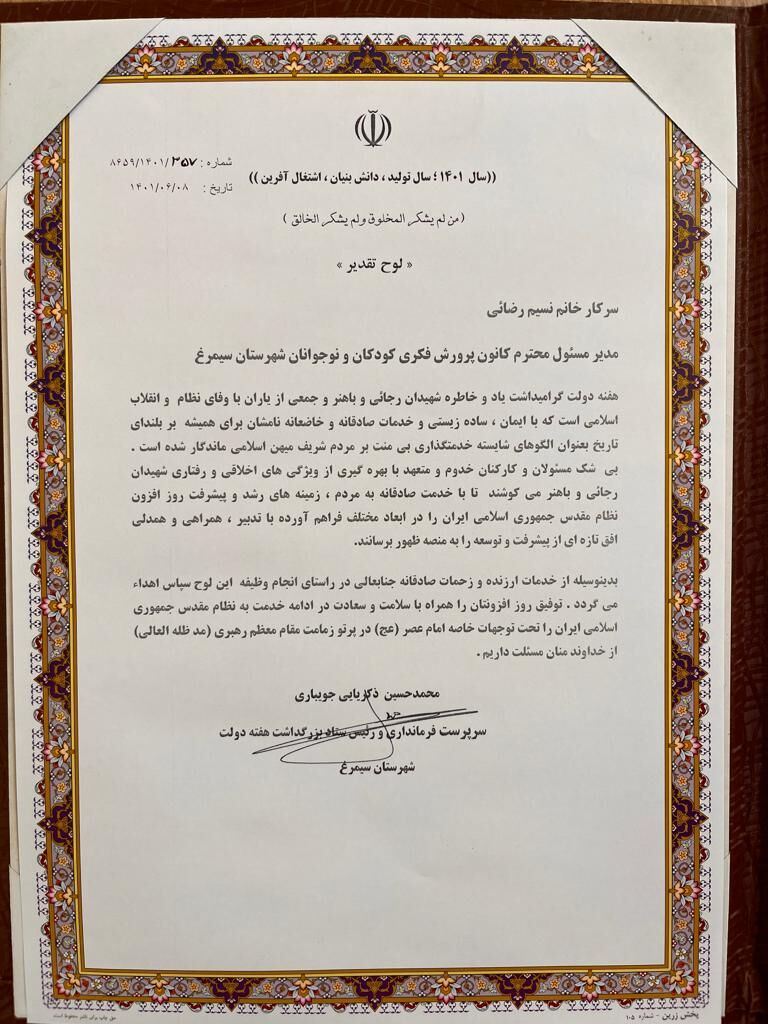 شماره : ۸۶۵۹/۱۴۰۱/۳۵۷
((سال ۱۴۰۱ ؛ سال تولید ، دانش بنیان ، اشتغال آفرین ))
تاریخ : ۱۴۰۱/۰۶/۰۸
( من لم یشکر المخلوق ولم یشکر الخالق )
« لوح تقدیر »
سرکار خانم نسیم رضائی
مدیر مسئول محترم کانون پرورش فکری کودکان و نوجوانان شهرستان سیمرغ
هفته دولت گرامیداشت یاد و خاطره شهیدان رجائی و باهنر و جمعی از یاران با وفای نظام و انقلاب
اسلامی است که با ایمان ، ساده زیستی و خدمات صادقانه و خاضعانه نامشان برای همیشه بر بلندای
تاریخ بعنوان الگوهای شایسته خدمتگذاری بی منت بر مردم شریف میهن اسلامی ماندگار شده است .
بی شک مسئولان و کارکنان خدوم و متعهد با بهره گیری از ویژگی های اخلاقی و رفتاری شهیدان
رجائی و باهنر می کوشند تا با خدمت صادقانه به مردم ، زمینه های رشد و پیشرفت روز افزون
نظام مقدس جمهوری اسلامی ایران را در ابعاد مختلف فراهم آورده با تدبیر ، همراهی و همدلی
افق تازه ای از پیشرفت و توسعه را به منصه ظهور برسانند.
بدینوسیله از خدمات ارزنده و زحمات صادقانه جنابعالی در راستای انجام وظیفه این لوح سپاس اهداء
می گردد . توفیق روز افزونتان را همراه با سلامت و سعادت در ادامه خدمت به نظام مقدس جمهوری
اسلامی ایران را تحت توجهات خاصه امام عصر (عج) در پرتو زمامت مقام معظم رهبری (مد ظله العالی)
از خداوند منان مسئلت داریم .
محمدحسین ذکریایی جویباری
سرپرست فرمانداری و رئیس ستاد بزرگداشت هفته دولت
شهرستان سیمرغ
پخش زرین - شماره ۱۰۵
حق چاپ برای ناشر محفوظ است